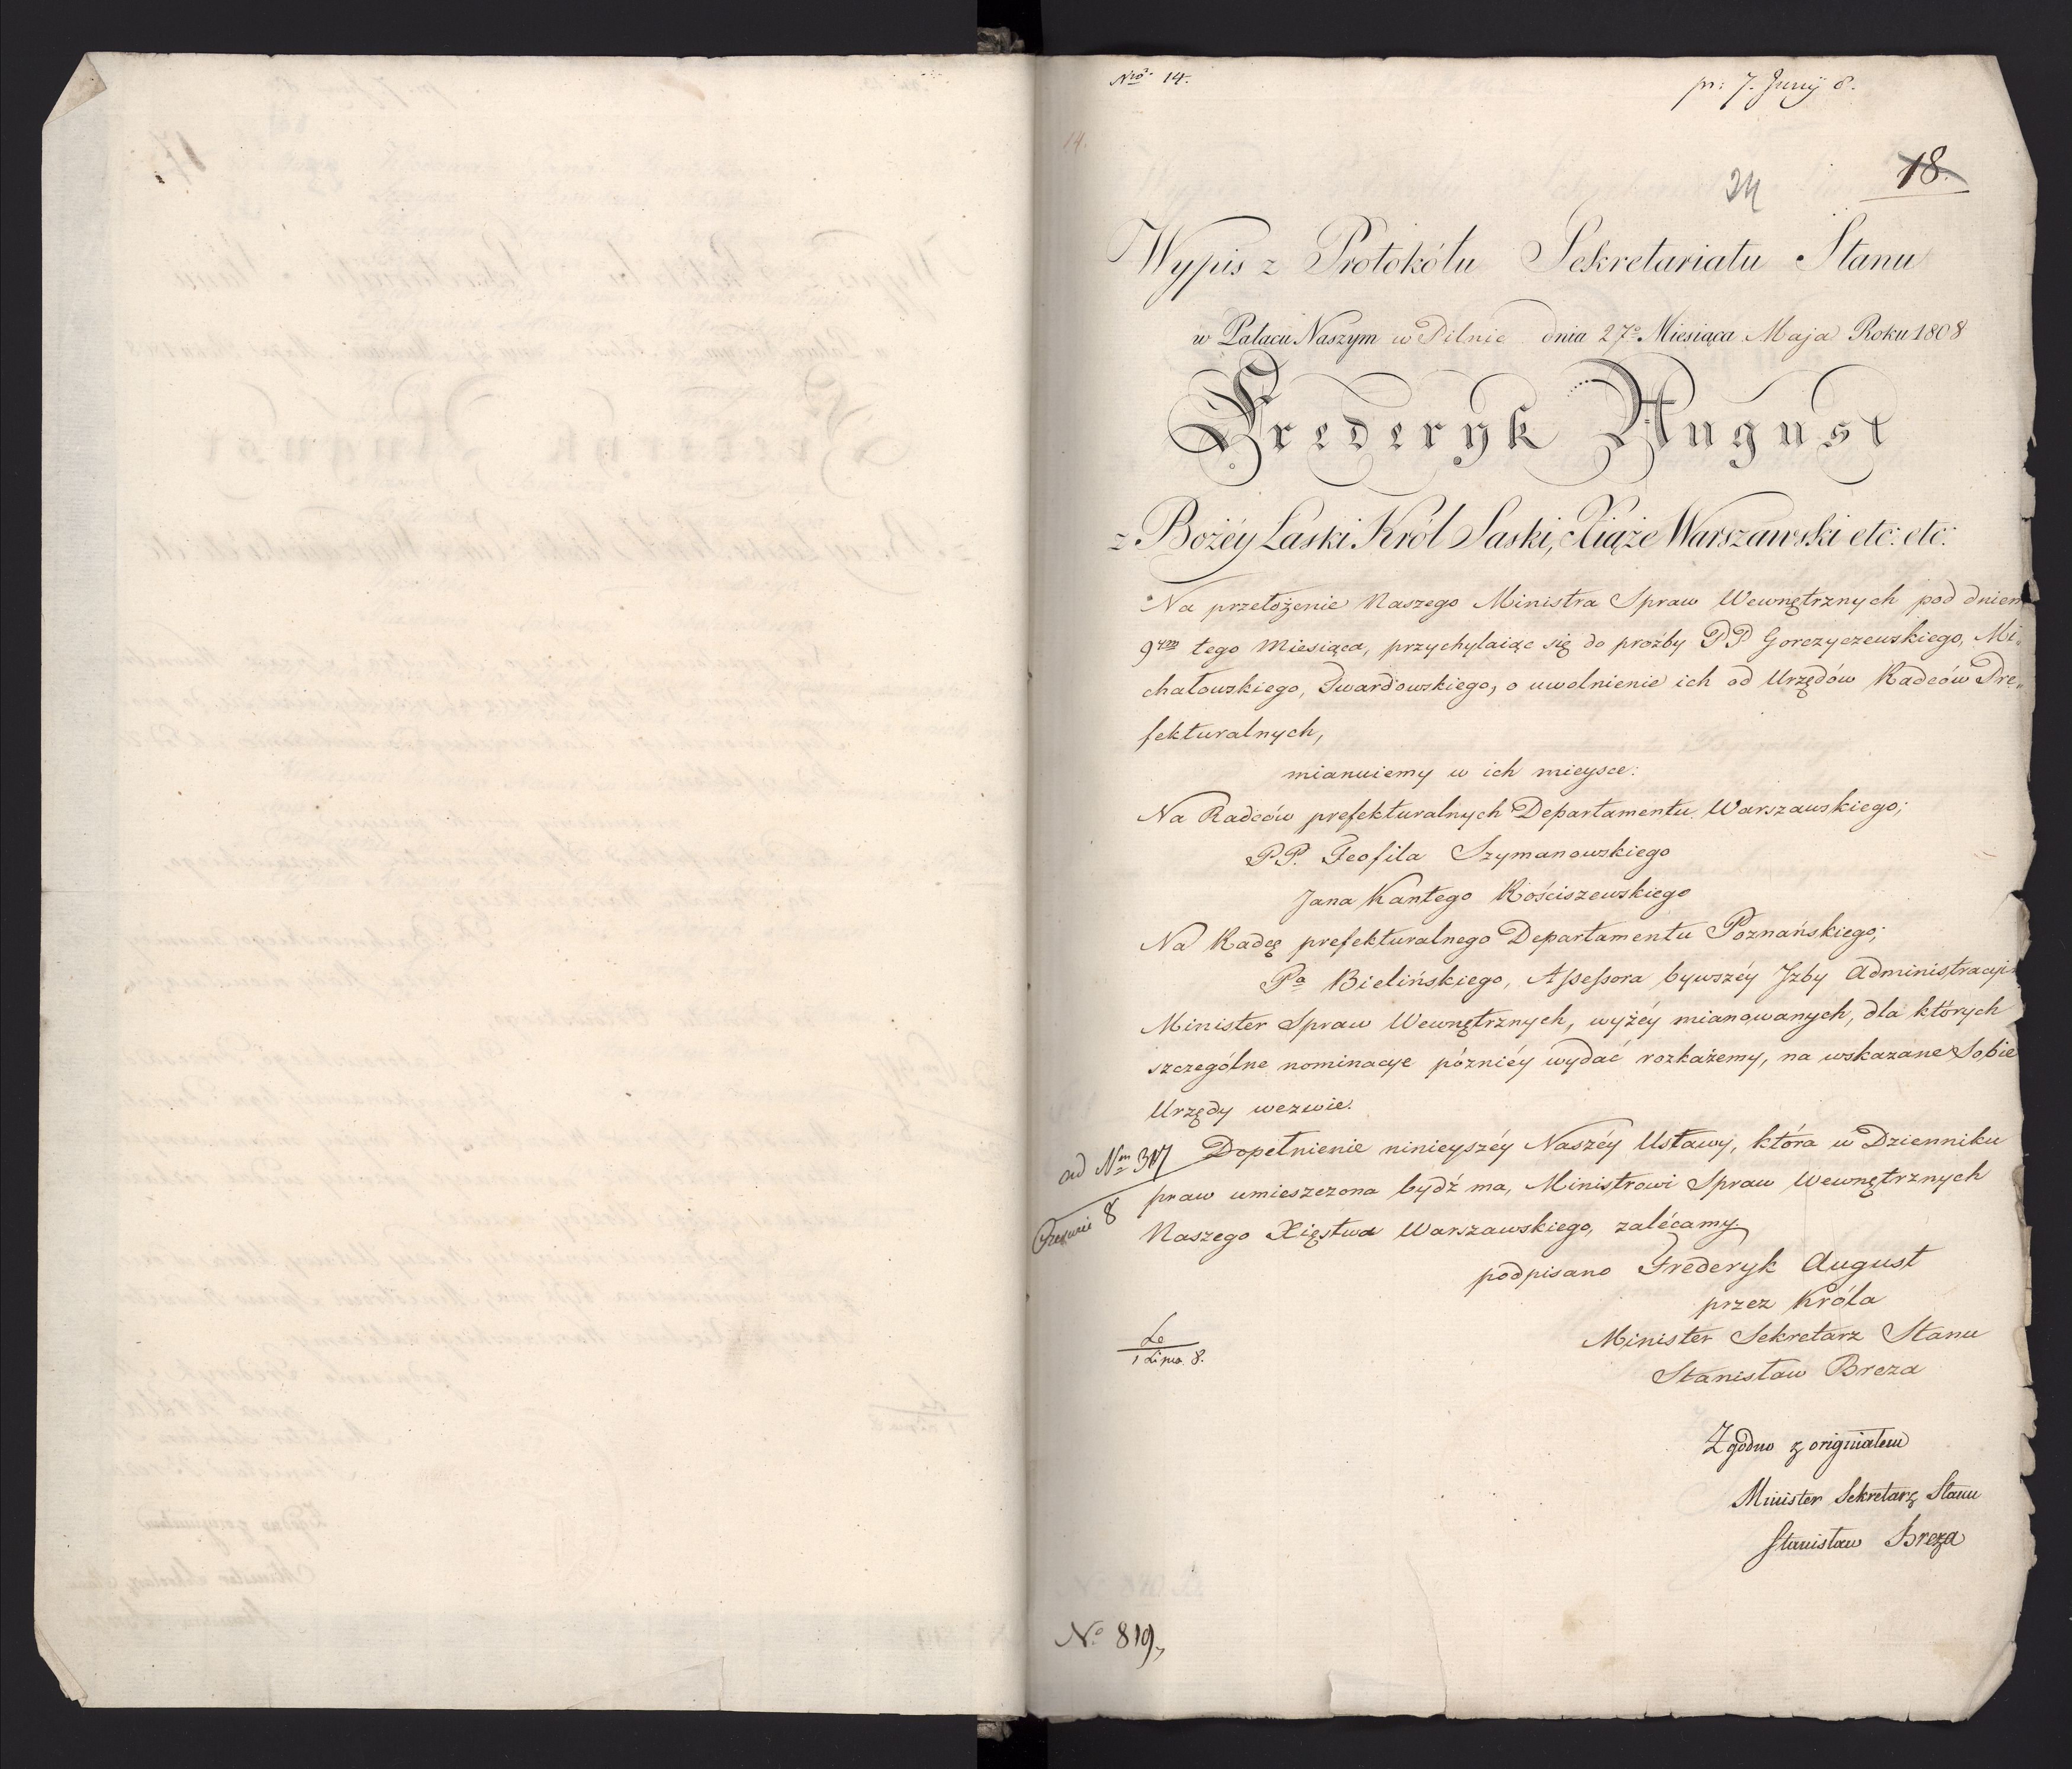 Nro 14.
pr: 7. Junÿ 8.
14.
18.
24
Wypis z Protokółu Sekretariatu Stanu
w Pałacu Naszym w Pilnic dnia 27º Miesiąca Maja Roku 1808
Frederyk August
z Bożéy Łaski Król Saski, Xiąże Warszawski etc: etc:
Na przełożenie Naszego Ministra Spraw Wewnętrznych pod dniem
9tym tego Miesiąca, przychylaiąc się do prożby PP Gorczyczewskiego, Mi„
chałowskiego, Twardowskiego, o uwolnienie ich od Urzędów Radców Pre„
fekturalnych,
mianuiemy w ich mieysce:
Na Radców prefekturalnych Departamentu Warszawskiego;
PP. Teofila Szymanowskiego
Jana Kantego Kościszewskiego
Na Radcę prefekturalnego Departamentu Poznańskiego;
Pa Bielińskiego, Assessora bywszéy Jzby Administracyi
Minister Spraw Wewnętrznych, wyżéy mianowanych, dla których
szczególne nominacye pózniéy wydać rozkażemy, na wskazane Sobie
Urzędy wezwie.
Dopełnienie ninieyszéy Naszéy Ustawy, która w Dzienniku
praw umieszczona bydź ma, Ministrowi Spraw Wewnętrznych
Naszego Xięstwa Warszawskiego, zalécamy.
ad Nm 317
8
podpisano Frederyk August
przez Króla
Minister Sekretarz Stanu
Stanisław Breza
1 Lipca 8.
Zgodno z originałem
Minister Sekretarz Stanu
Stanisław Breza
No 819,